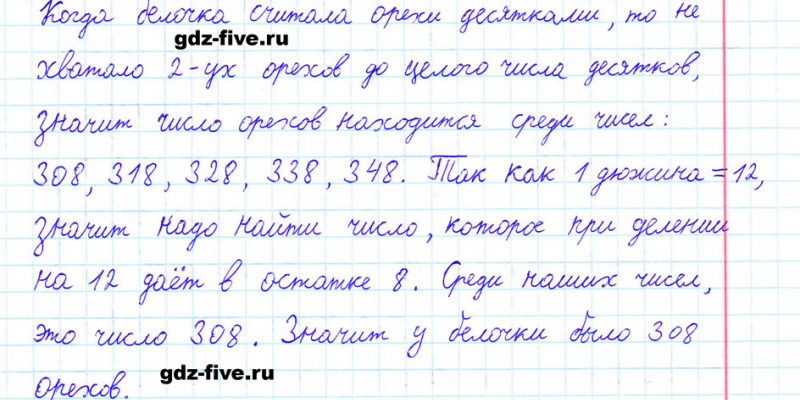 Когда белочка считала орехи десятками, то не
gdz-five.ru
хватало 2-ух орехов до целого числа десятков,
значит число орехов находится среди чисел:
308, 318, 328, 338, 348. Так как 1 дюжина = 12,
значит надо найти число, которое при делении
на 12 даёт в остатке 8. Среди наших чисел,
это число 308. Значит у белочки было 308
gdz-five.ru
орехов.